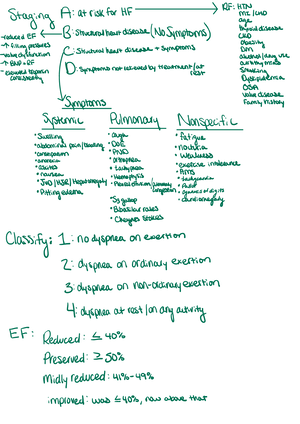 Staging
A: at risk for HF
RF: HTN
MI / CAD
age
thyroid disease
CKD
Obesity
DM
alcohol/drug use
arrhythmias
Smoking
Dyslipidemia
OSA
valve disease
Family history
B: Structural heart disease (No Symptoms)
-reduced EF
-↑ filling pressures
-valve dysfunction
-↑ BNP + RF
-elevated troponin consistently
C: Structural heart disease + Symptoms
D: Symptoms not relieved by treatment / at rest
Symptoms
Systemic
• Swelling
• abdominal pain / bloating
• anorexia
• ascites
• nausea
• JVD / HJR / Hepatomegaly
• Pitting edema
Pulmonary
• DOE
• PND
• orthopnea
• tachypnea
• Hemoptysis
• Pleural effusion / pulmonary congestion
• S3 gallop
• Bibasilar rales
• Cheyne Stokes
Nonspecific
• fatigue
• nocturia
• weakness
• exercise intolerance
• tachycardia
• Pallor
• cyanosis of digits
• cardiomegaly
Classify: 1: no dyspnea on exertion
2: dyspnea on ordinary exertion
3: dyspnea on non-ordinary exertion
4: dyspnea at rest / on any activity
EF: Reduced: ≤ 40%
Preserved: ≥ 50%
Midly reduced: 41%-49%
improved: was ≤40%, now above that